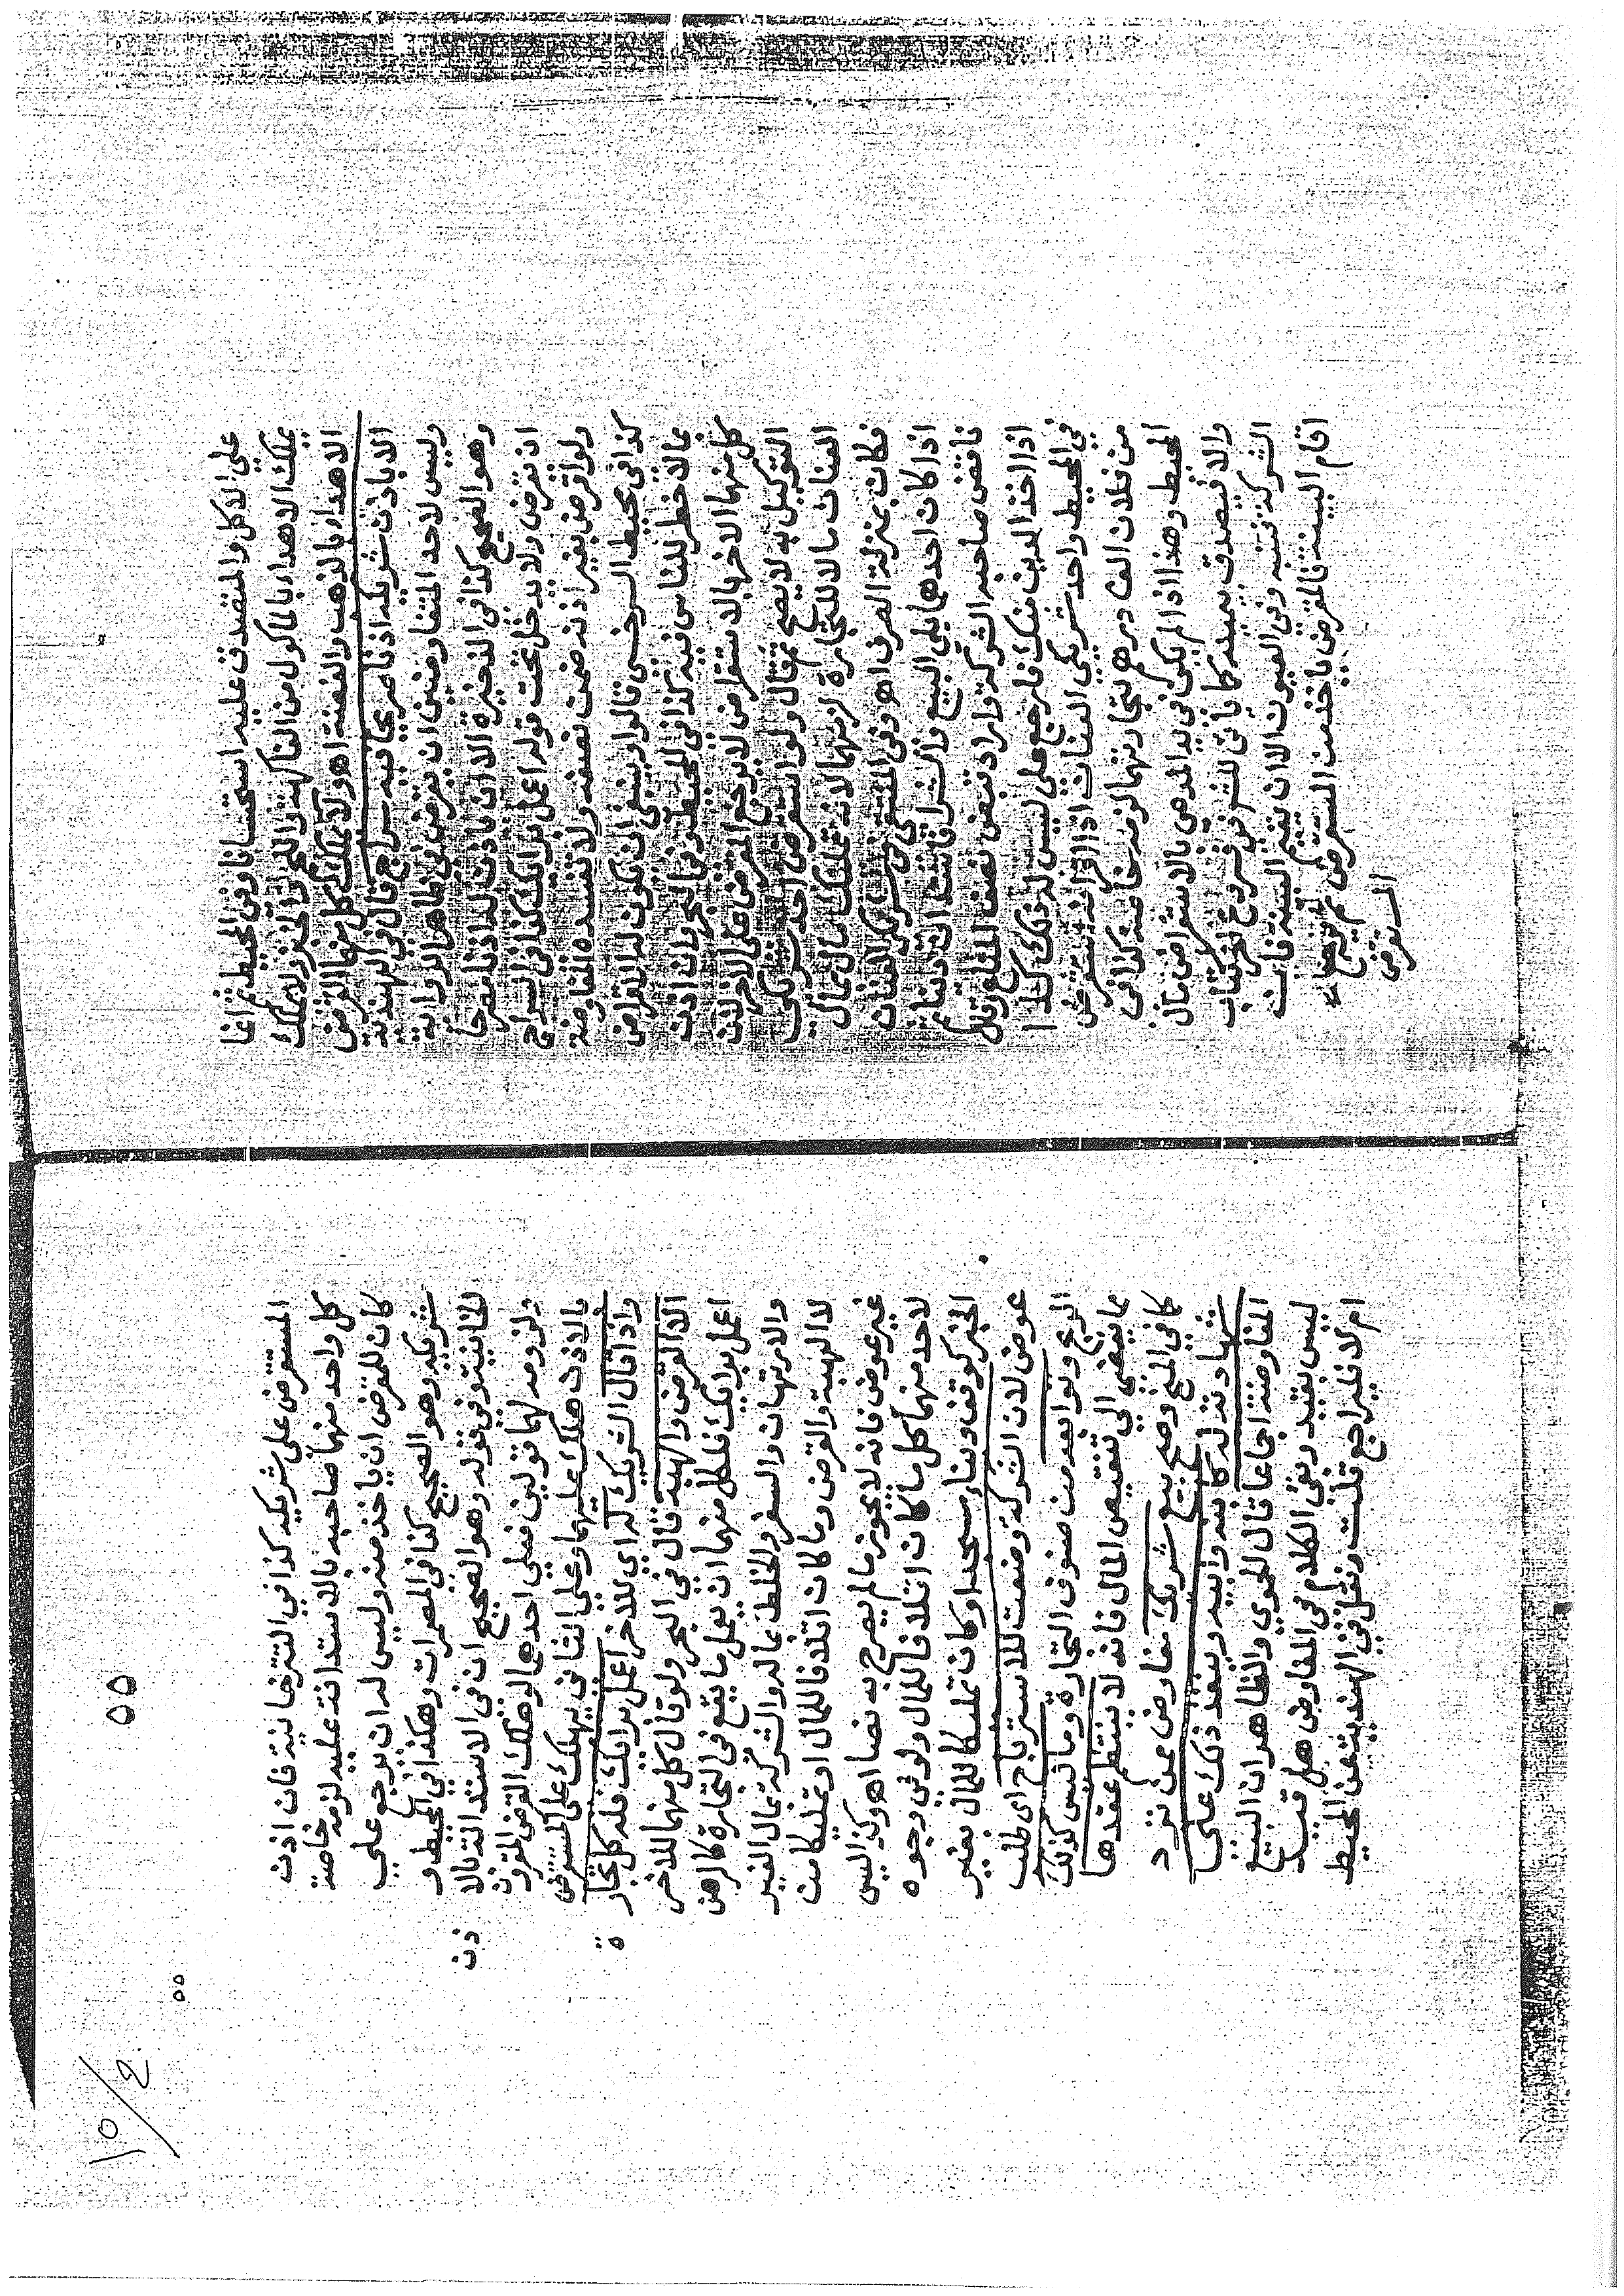 على الاكل والمتصدق عليه استحسانا وفي المحيط ثم انما
يملك الاهداء بالماكول من الفاكهة واللحم والخبز ولا يملك
الاهداء بالذهب والفضة اهـ ولا يملك كل منهما القرض
الا باذن شريكه اذنا صريحا فيه سراج قال في الهندية
وليس لاحد المتفاوضين ان يقرض في ظاهر الرواية
وهو الصحيح كذا في الذخيرة الا ان ياذن له اذنا مصرحا
ان يقرض ولا يدخل تحت قوله اعمل برايك كذا في السراج
ولو اقرض بغير اذنه ضمن نصفه ولا تفسد المفاوضة
كذا في محيط السرخسي قالوا وينبغي ان يكون له الاقراض
بما لا خطر للناس فيه كذا في المحيط وفي البحر وان اذن
كل منهما الاخر بالاستقراض لا يرجع المقرض على الاخر لان
التوكيل به لا يصح ثم قال ولو استقرض احد شريكي
العنان مالا للتجارة لزمهما لانه تمليك مال بمال
فكان بمنزلة الصرف اهـ وفي المنتقى من شريكي العنان
اذا كان احدهما يلي البيع والشرا فاستدان دينا ثم
ناقض صاحبه الشركة واراد قبض نصف المتاع وقال
اذا اخذ الدين منك فارجع علي ليس له ذلك كذا
في المحيط واحد شريكي العنان اذا اقر انه استقرض
من فلان الف درهم لتجارتهما لزمه خاصة كذا في
المحيط وهذا اذا لم يكن في يد المدعي بالاستقراض مال
والا فيصدق بيمينه كما ياتي للشرح في فروع اخر الكتاب
الشركة تنبه وفي العيون الا ان تقيم البينة فان
اقام البينة فالمقرض ياخذ من المستقرض ثم يرجع
المستقرض
٥٥
المستقرض على شريكه كذا في التترخانية فان اذن
كل واحد منهما صاحبه بالاستدانة عليه لزمه خاصة
كان للمقرض ان ياخذ منه وليس له ان يرجع على
شريكه وهو الصحيح كذا في المضمرات وهكذا في المحيط و
الخانية وفي قوله وهو الصحيح ان في الاستدانة بالا
ذن
ولزومه لهما قولين فعلى احدهما لو هلك القرض المقرون
بالاذن هلك عليهما وعلى الثاني يهلك على المستقرض
واذا قال الشريك له اي للاخر اعمل برايك فله كل تجارة
الا القرض والهبة قال في البحر ولو قال كل منهما للاخر
اعمل برايك فلكل منهما ان يعمل ما يقع في التجارة كالرهن
والارتهان والسفر والخلط بماله والشركة بمال الغير
لا الهبة والقرض وما كان اتلافا للمال او تمليكا من
غير عوض فانه لا يجوز ما لم يصرح به نصا اهـ وكذا ليس
لاحد منهما كل ما كان اتلافا للمال ولو في وجوه
الخير كوقف وبناء مسجد او كان تمليكا للمال بغير
عوض لان الشركة وضعت للاسترباح اي طلب
الربح ولو ابعد من صنوف التجارة وما ليس كذلك
مما يفضي الى تنقيص المال فانه لا ينتظم عقدها
كما في المنح وصح بيع شريك مفاوض ممن ترد
شهادته له كابنه وابيه وينفذ ذلك على
المفاوضة اجماعا قال الحموي والظاهر ان البيع
ليس بقيد وبقي الكلام في المفاوض هل قيد
ام لا فليراجع قلت ونقل في الهندية عن المحيط